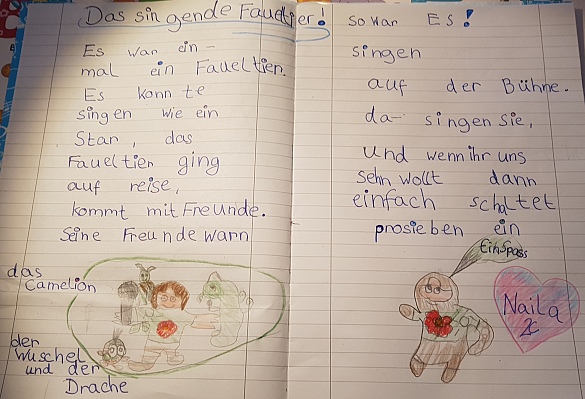 Das singende Faueltier!
Es war ein-
mal ein Faueltier.
Es konnte
singen wie ein
Star, das
Faueltier ging
auf reise,
kommt mit Freunde.
Seine Freunde warn
das
Camelion
der
Wuschel
und der
Drache
so war ES!
singen
auf der Bühne.
da- singen sie,
und wenn ihr uns
sehn wollt dann
einfach schaltet
prosieben ein
Ein Spass
Naila
2c